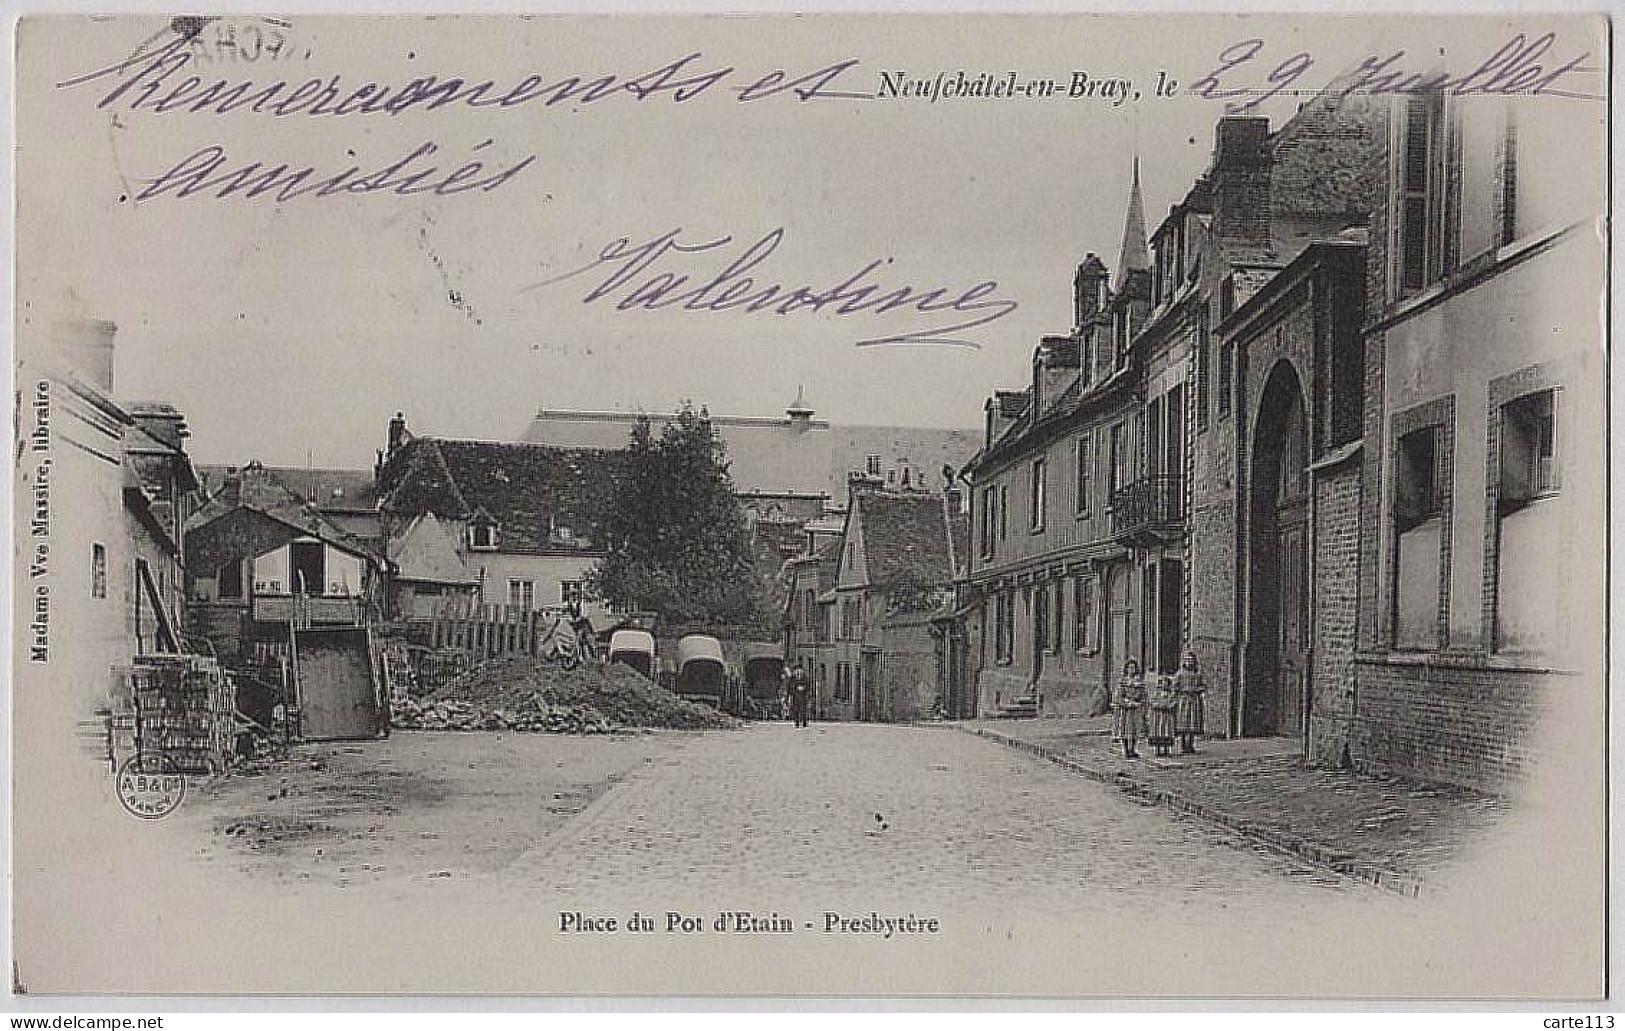 Remerciements et
Neufchâtel-en-Bray, le 29 Juillet
amitiés
Valentine
Madame Vve Massire, libraire
A B & Cie
NANCY
Place du Pot d'Etain - Presbytère
delcampe.net
carte113